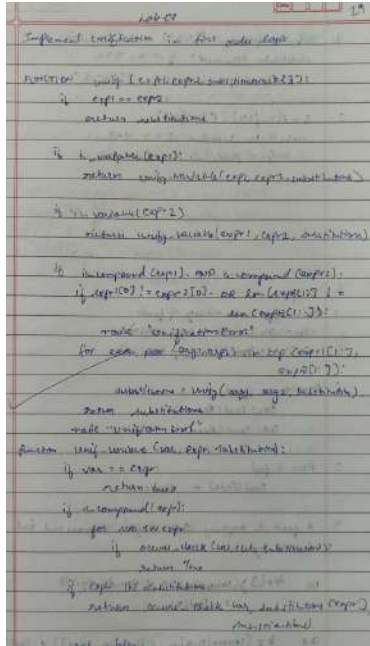 29
Lab-07
Implement unification in first order logic
FUNCTION unify (expr1, expr2, substitutions={}):
if expr1 == expr2:
return substitutions
if is_variable(expr1):
return unify_variable(expr1, expr2, substitutions)
if is_variable(expr2)
return unify_variable(expr1, expr2, substitutions)
if is_compound(expr1) and is_compound(expr2):
if expr1[0] != expr2[0] or len(expr1[1:]) !=
len(expr2[1:]):
raise "Unification Error"
for each pair (arg1, arg2) in zip (expr1[1:],
expr2[1:]):
substitutions = Unify(arg1, arg2, substitutions)
return substitutions
raise "Unification Error"
function unify variable (var, expr, substitutions):
if var == expr:
return
if is compound(expr):
for in expr
if occurs_check(var, substitutions):
return True
if expr in substitutions
return occurs_check(var, substitutions(expr)
substitutions)